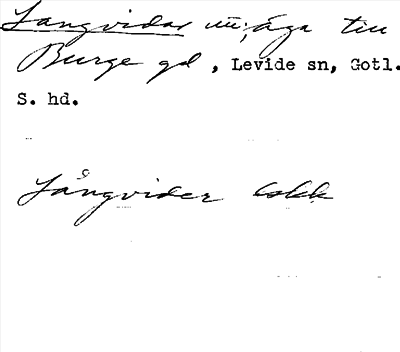 Langvidar m; äga till
Burge gd, Levide sn, Gotl.
S. hd.
Långvider